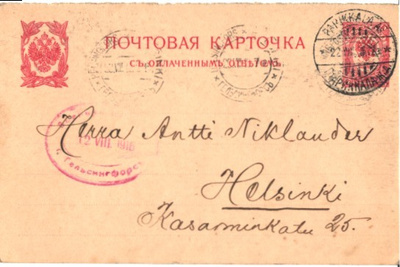 ПОЧТОВАЯ КАРТОЧКА
СЪ ОПЛАЧЕННЫМЪ ОТВѢТОМЪ.
12 VIII. 1916
Гельсингфорс
Herra Antti Niklander
Helsinki
Kasarminkatu 25.